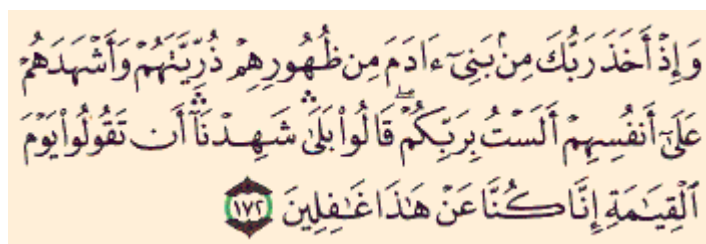 وَإِذْ أَخَذَ رَبُّكَ مِنۢ بَنِىٓ ءَادَمَ مِن ظُهُورِهِمْ ذُرِّيَّتَهُمْ وَأَشْهَدَهُمْ
عَلَىٰٓ أَنفُسِهِمْ أَلَسْتُ بِرَبِّكُمْ ۖ قَالُوا۟ بَلَىٰ ۛ شَهِدْنَآ ۛ أَن تَقُولُوا۟ يَوْمَ
ٱلْقِيَـٰمَةِ إِنَّا كُنَّا عَنْ هَـٰذَا غَـٰفِلِينَ ١٧٢